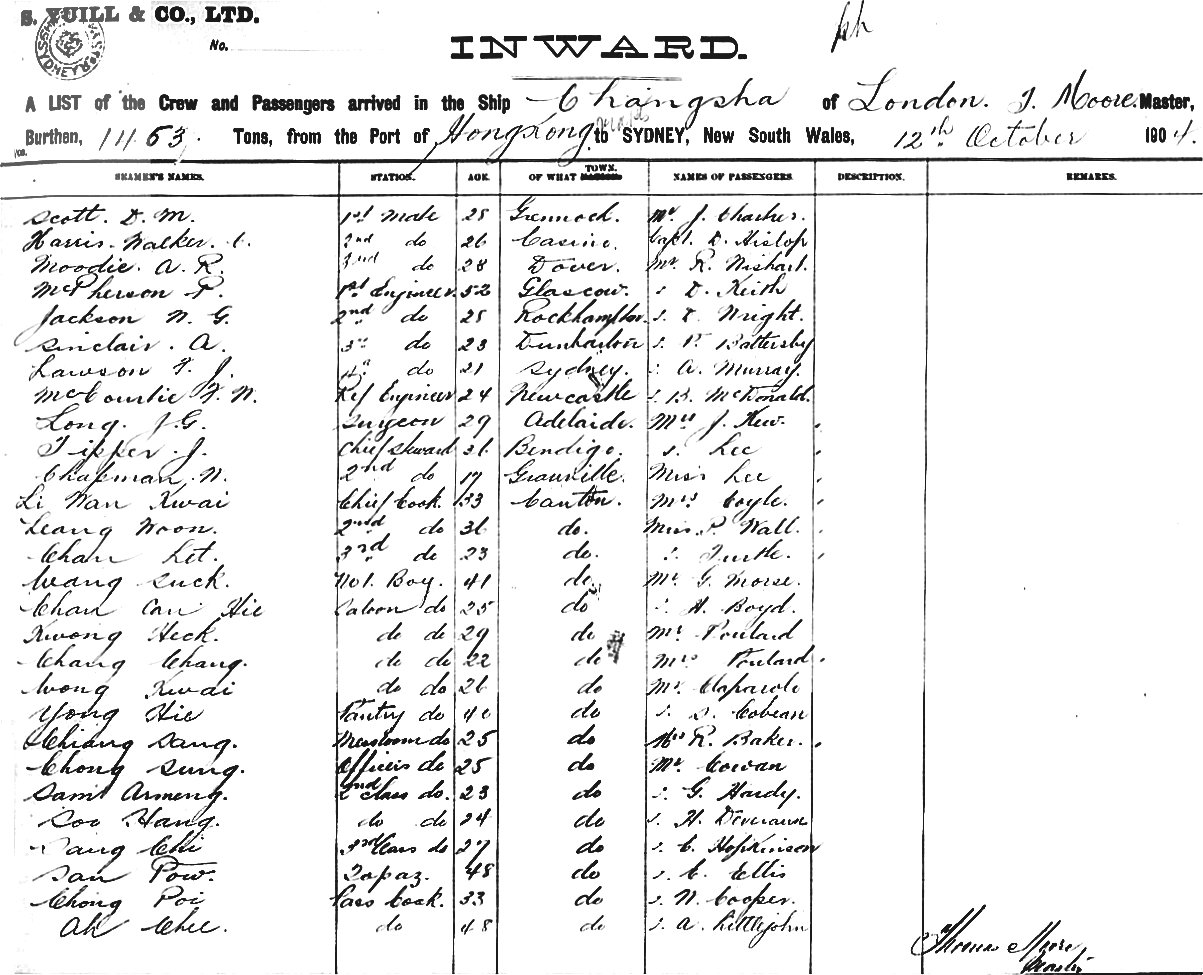 S. YUILL & CO., LTD.
No.
INWARD.
A LIST of the Crew and Passengers arrived in the Ship Changsha of London. T. Moore. Master,
Burthen, 1463. Tons, from the Port of Hong Kong to SYDNEY, New South Wales, 12th October 1904.
SEAMEN'S NAMES. STATION. AGE. OF WHAT TOWN. NAMES OF PASSENGERS. DESCRIPTION. REMARKS.
Scott. D. M. 1st Mate 28 Greenock. Mr J.
Harris. Walker. C. 2nd do 26 Casino. Capt. D. Hislop
Moodie. A. R. 3rd do 28 Dover. Mr R. Wishart.
McPherson P. 1st Engineer. 52 Glascow. " D. Keith
Jackson W. G. 2nd do 28 Rockhampton " D. Wright.
Sinclair. A. 3rd do 23 Dunbarton " P. Battersby
Lawson F. J. 4th do 21 Sydney. " A. Murray.
McCourtie F. W. Ref Engineer 24 Newcastle " B. McDonald.
Long. J. G. Surgeon 29 Adelaide. Mrs J. Kew.
Tipper. J. Chief Steward 36 Bendigo. " Lee
Chapman. W. 2nd do 17 Granville. Miss Lee
Li Wan Kwai Chief Cook. 33 Canton. Mrs Coyle.
Leang Woon. 2nd do 36 do. Miss P. Wall.
Chan Let. 3rd do 23 do. " Turtle.
Wang Suck. No1. Boy. 41 do. Mr G. Morse.
Chan Can Hie Saloon do 25 do " H. Boyd.
Kwong Heck. do do 29 do Mr Poulard
Chang Chang. do do 22 do Mrs Poulard.
Wong Kwai do do 26 do Mr
Yong Hie Pantry do 40 do " S. Cobean
Chiang Sang. Messroom do 25 do Mrs R. Baker.
Chong Sung. Officers do 25 do Mr Cowan
Sam Armeng. 2nd Class do. 23 do " G. Hardy.
Soo Hang. do do 24 do " H.
Chi 3rd Class do 27 do " C. Hopkinson
San Pow. Topaz. 48 do " C. Ellis
Chong Poi Cook. 33 do " W. Cooper.
Ah Chee. do 48 do " A. Littlejohn
Thomas Moore
Master